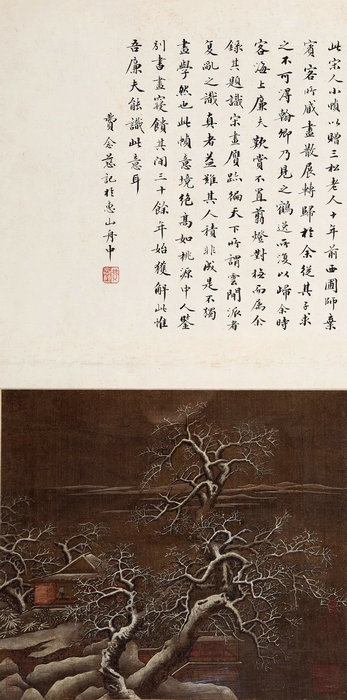 此宋人小幀以贈三松老人十年前西圃師棄
賓客所咸畫散展轉歸於余從其子求
之不可淂翰卿乃見之鶴逆所復以歸余時
客海上廉夫歎賞不置翦燈對橅而属余
録其題識宋畫贋跡徧天下所謂雲閒派者
复亂之識真者益難其人積非成是不獨
畫學然也此幀意境絕高如桃源中人鑒
別書畫寢饋其間三十餘年始獲解此惟
吾廉夫能識此意耳
費念慈記於惠山舟中